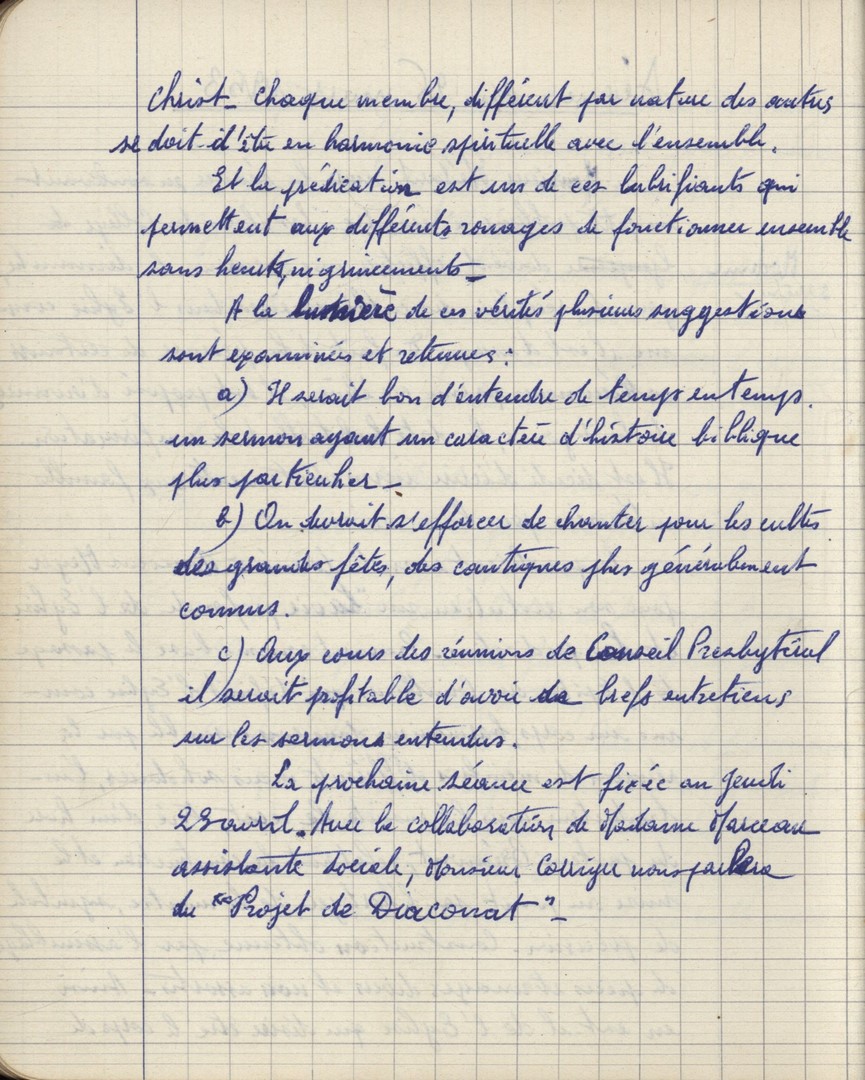 Christ_ Chaque membre, différent par nature des autres
se doit d'être en harmonie spirituelle avec l'ensemble.
Et la prédication est un de ces lubrifiants qui
permettent aux différents rouages de fonctionner ensemble
sans heurts, ni grincements_
A la lumière de ces vérités plusieurs suggestions
sont examinées et retenues :
a) Il serait bon d'entendre de temps en temps.
un sermon ayant un caractère d'histoire biblique
plus particulier_
b) On devrait s'efforcer de chanter pour les cultes
des grandes fêtes, des cantiques plus généralement
connus.
c) Aux cours des réunions de Conseil Presbytéral
il serait profitable d'avoir de brefs entretiens
sur les sermons entendus.
La prochaine séance est fixée au Jeudi
avril. Avec la collaboration de Madame Marceau
assistante sociale, Monsieur nous parlera
du "Projet de Diaconat"_